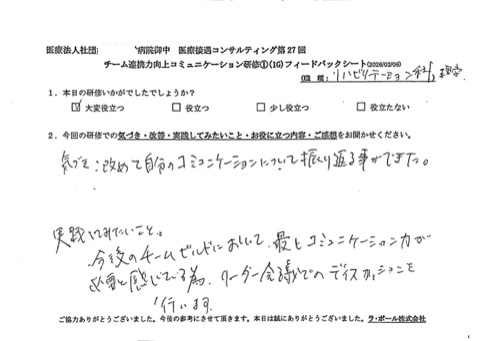 医療法人社団 病院御中 医療接遇コンサルティング第27回
チーム連携力向上コミュニケーション研修①(1G)フィードバックシート(2026/02/06)
(職種: リハビリテーション科
1.本日の研修いかがでしたでしょうか?
☑大変役立つ □役立つ □少し役立つ □役立たない
2.今回の研修での気づき・改善・実践してみたいこと・お役に立つ内容・ご感想をお聞かせください。
気づき:改めて自分のコミュニケーションについて振り返る事ができた。
実践してみたいこと。
今後のチームビルドにおいて、最もコミュニケーション力が
必要と感じている為、リーダー会議でのディスカッションを
行います。
ご協力ありがとうございました。今後の参考にさせて頂きます。本日は誠にありがとうございました。ラ・ポール株式会社